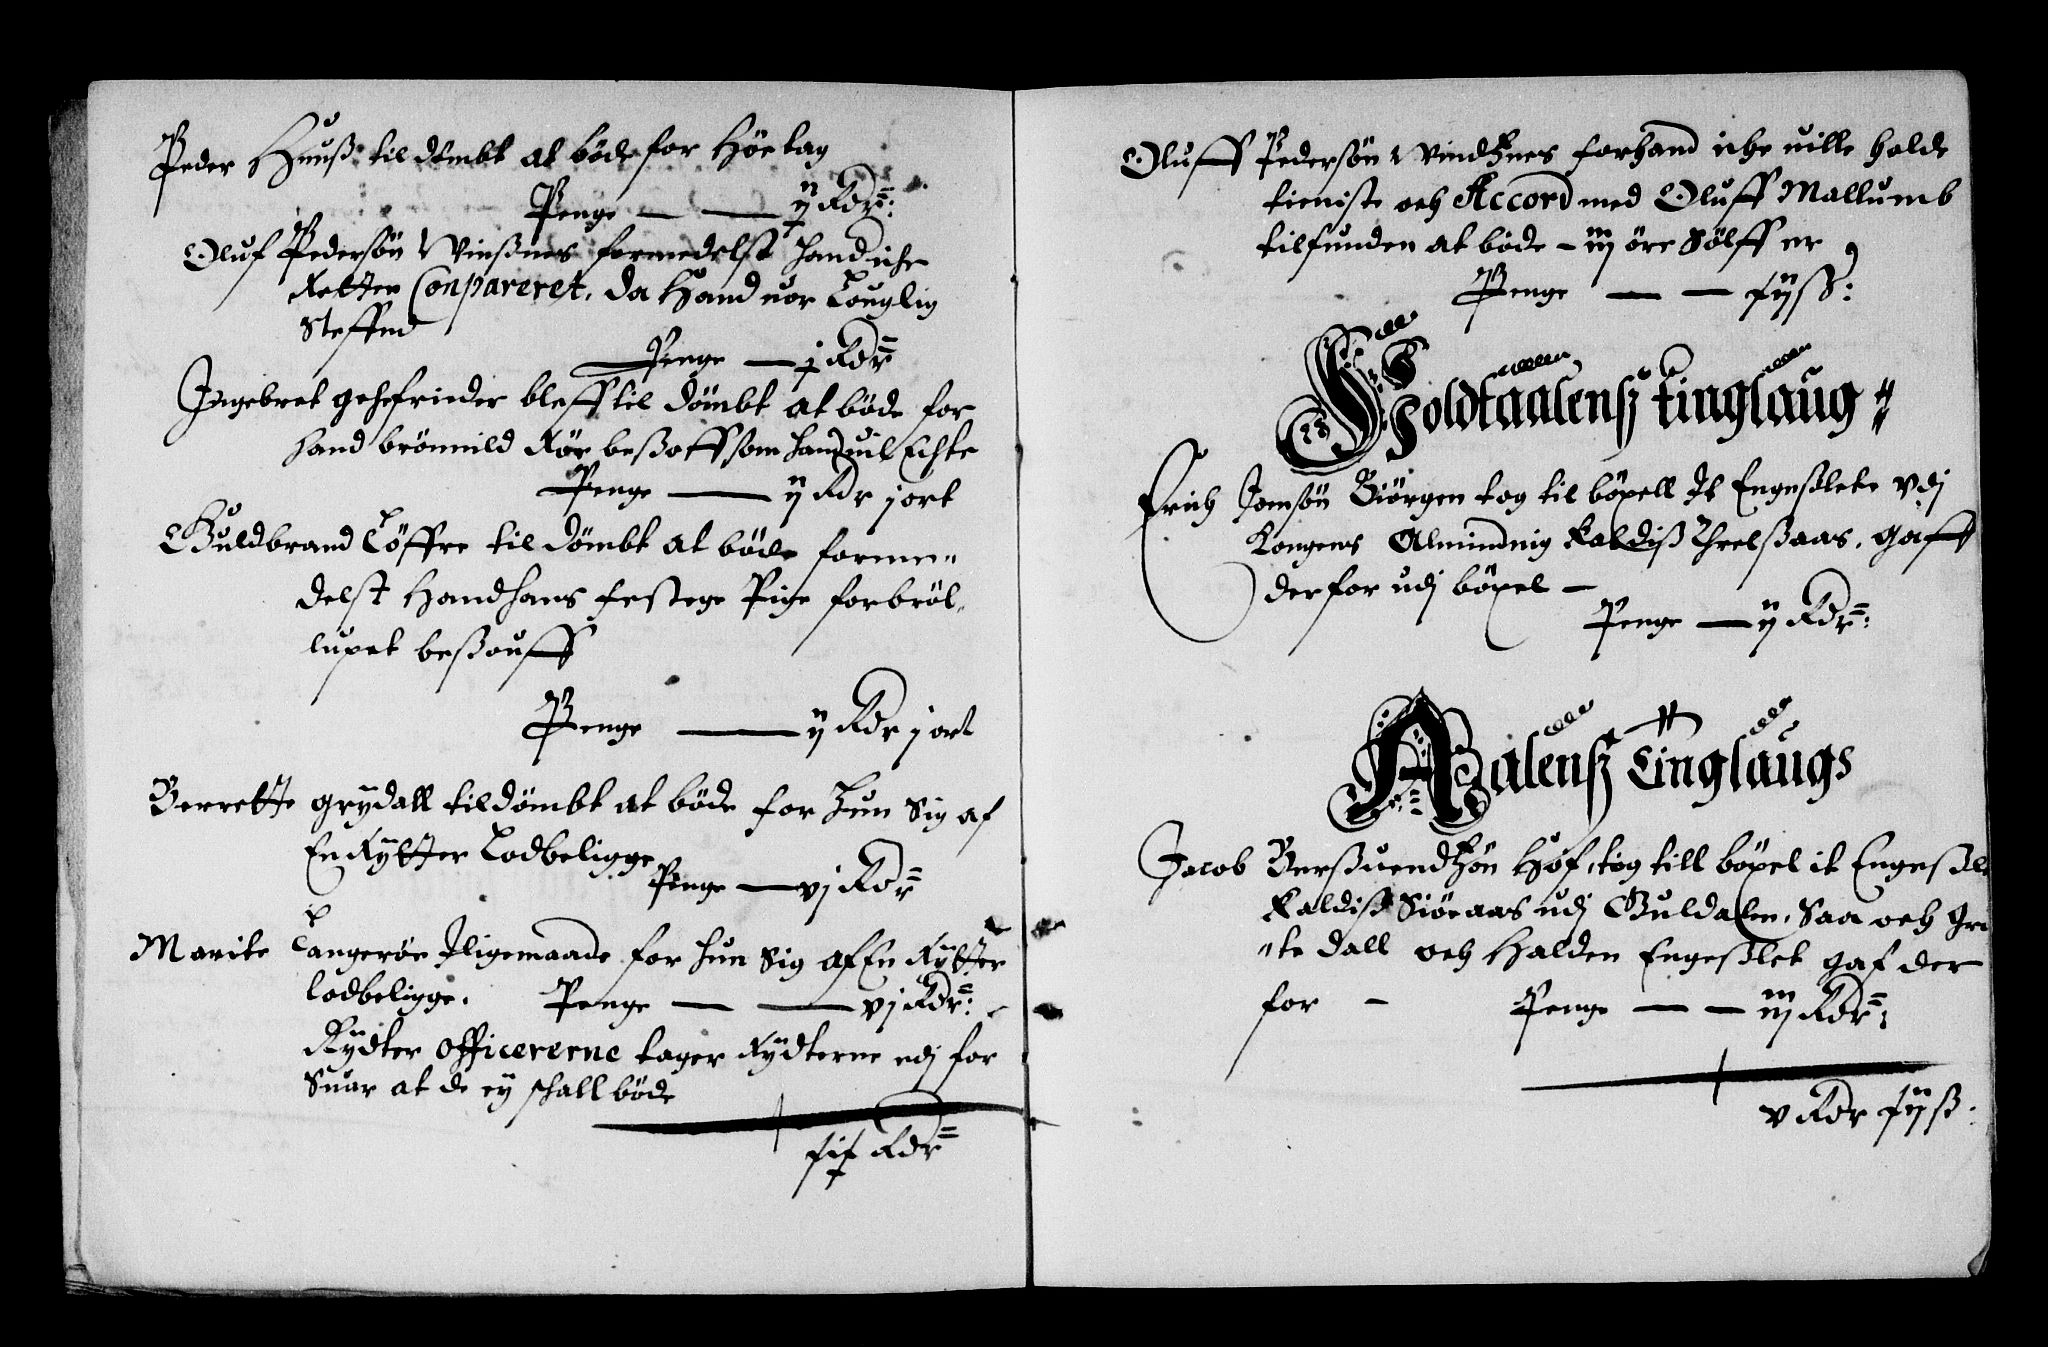 Peder Huuß til dömbt at böde for Höetag
Penge — — ij Rdr:
Oluf Pedersön Winßnes formedelst hand iche
Retten Conpareret, da Hand uor Louglig
Steffnd
Penge — j Rdr
Ingebret gehefrieder bleff til dömbt at böde for
hand brönnild Rör beßoff som hand uil Echte
Penge — ij Rdr j ort
Guldbrand Löffre til dömbt at böde forme„
delst Hand hans festege Pige for bröl„
lupet beßouff
Penge — ij Rdr j ort
Berrette grydall til dömbt at böde for hun Sig af
En Rytter Lod beligge
Penge — vj Rdr
Marite Langeröe Iligemaade for hun Sig af En Rytter
lod beligge. Penge — — vj Rdr:
Rydter officererne tager Rydterne udj for
Suar at de ey schall böde
xix Rdr
Oluff Pedersön Windznes for hand iche uille holde
tieniste och Accord med Oluff Mallumb
tilfunden at böde – iij öre Sölff er
Penge — — xijß:
Holdtaalensz tinglaug
Erich Jonsön Biörgen tog til böxell It Engeßlete Vdj
Kongens Alminding Kaldiß Threlßaas, gaff
derfor udj böxel –
Penge — ij Rdr:
Aalensz tinglaugs
Jacob Berßuendzön Hof, tog till böxel it Engeßle
Kaldiß Siöeaas udj Guldalen, Saa och Gr
„te dall och Halden Engeßlet gaf der
for – Penge — — iij Rdr:
v Rdr xijß: